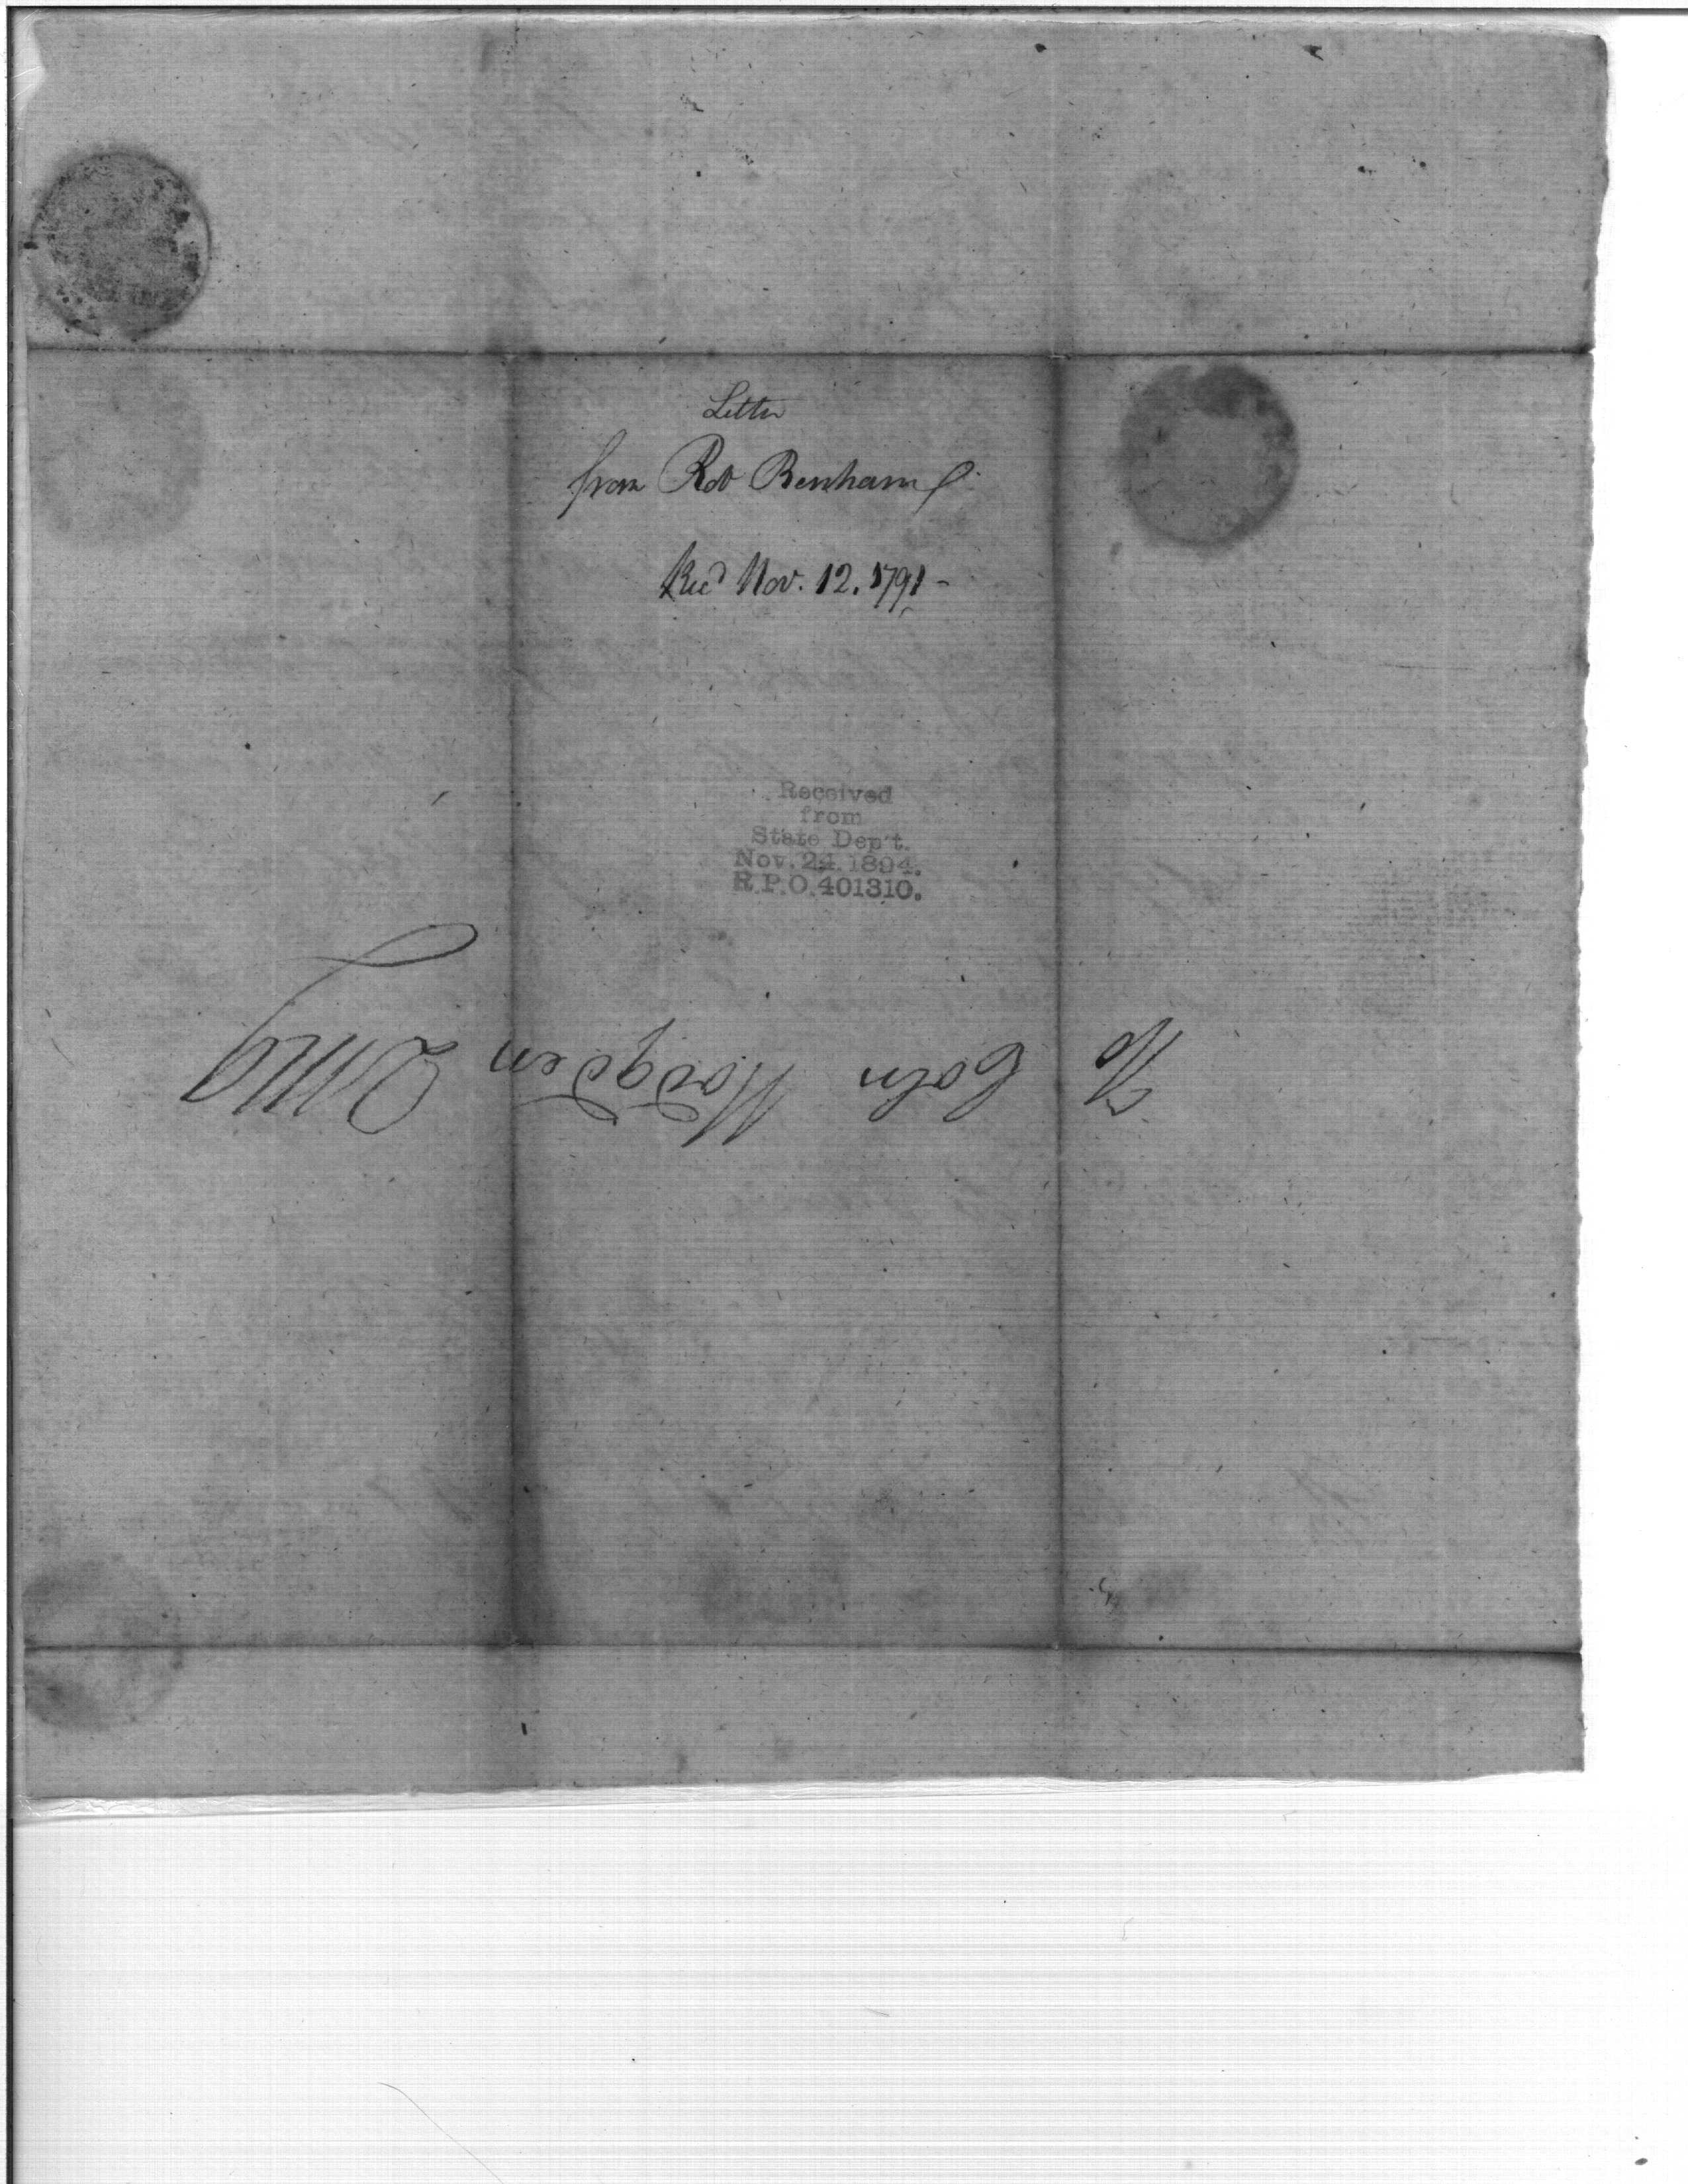 Letter
from Rob Benham
Recd Nov. 12. 1791-
Received
from
State Dep't.
Nov. 24. 1894.
R.P.O. 401310.
To Coln Hodgden QMG